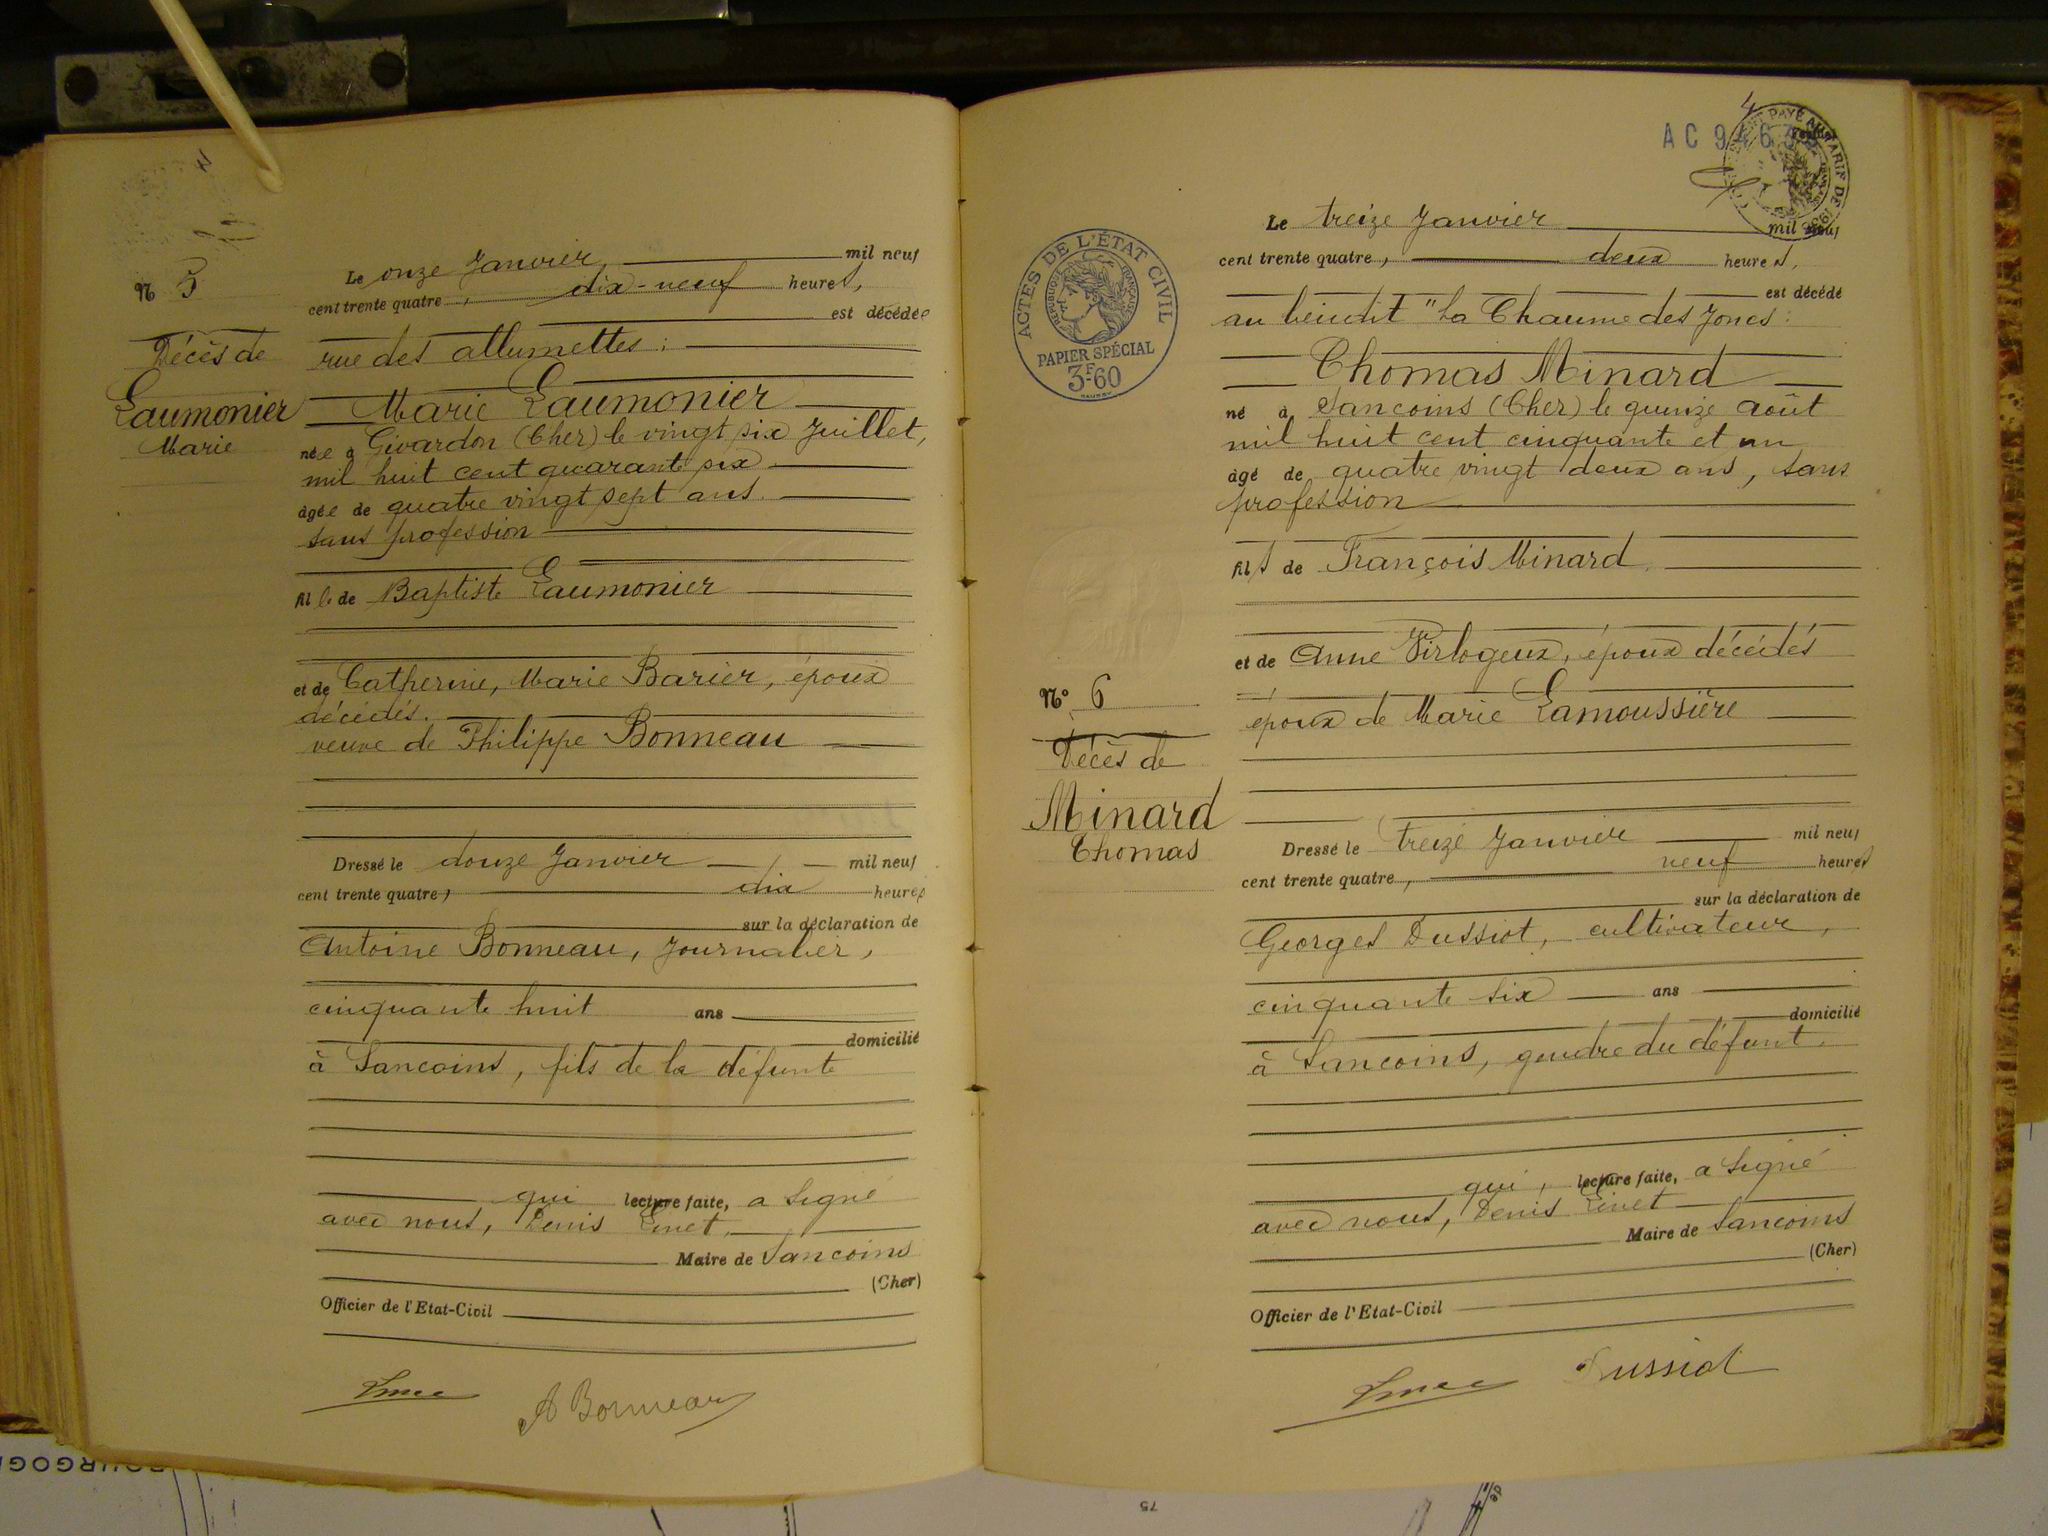 4
N 5
Décès de
Laumonier
Marie
Le onze Janvier, mil neuf
cent trente quatre, dix-neuf heures,
est décédée
rue des allumettes :
Marie Laumonier
née à Givardon (Cher) le vingt six Juillet,
mil huit cent quarante six
âgée de quatre vingt sept ans.
sans profession
fille de Baptiste Laumonier
et de Catherine, Marie Barier, époux
décédés.
veuve de Philippe Bonneau
Dressé le douze Janvier, mil neuf
cent trente quatre, dix heures
sur la déclaration de
Antoine Bonneau, journalier,
cinquante huit ans
domicilié
à Sancoins, fils de la défunte
qui lecture faite, a signé
avec nous, Denis
Maire de Sancoins
(Cher)
Officier de l'Etat-Civil
A Bonneau
4
AC 946
PAYÉ AU TARIF DE
ACTES DE L'ÉTAT CIVIL
RÉPUBLIQUE FRANÇAISE
PAPIER SPÉCIAL
3F-60
N° 6
Décès de
Minard
Thomas
Le treize Janvier mil neuf
cent trente quatre, deux heures,
est décédé
au lieudit "La Chaume des Joncs :
Thomas Minard
né à Sancoins (Cher) le quinze août
mil huit cent cinquante et un
âgé de quatre vingt deux ans, sans
profession
fils de François Minard
et de Anne Virlogeux, époux décédés
époux de Marie Lamoussière
Dressé le treize Janvier mil neuf
cent trente quatre, neuf heures
sur la déclaration de
Georges Dussiot, cultivateur,
cinquante six ans
domicilié
à Sancoins, gendre du défunt.
qui, lecture faite, a signé
avec nous, Denis
Maire de Sancoins
(Cher)
Officier de l'Etat-Civil
Dussiot
75